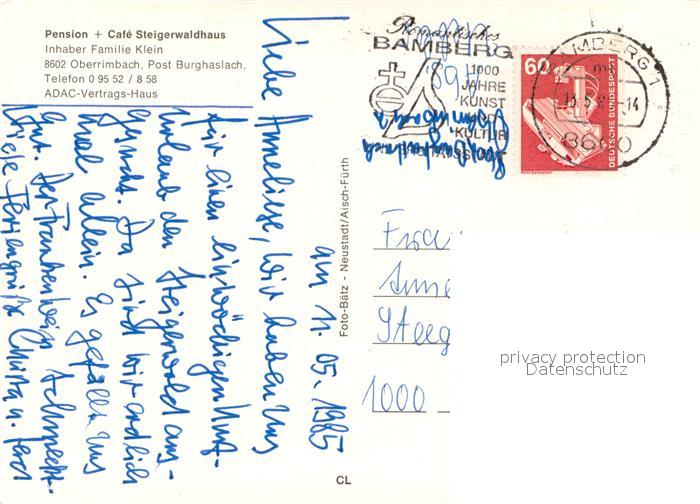 Pension + Café Steigerwaldhaus
Inhaber Familie Klein
8602 Oberrimbach, Post Burghaslach.
Telefon 0 95 52 / 8 58
ADAC-Vertrags-Haus
am 11. 05. 1985
Liebe Anneliese, wir haben uns
für einen einwöchigen Kurz-
urlaub den Steigerwald aus-
gesucht. Da sind wir endlich
mal allein. Es gefällt uns
gut. Der Frankenwein schmeckt.
Viele Feriengrüße Christa u.
Foto-Bätz - Neustadt/Aisch-Fürth
CL
Romantisches
BAMBERG
1000
JAHRE
KUNST
UND
KULTUR
BAMBERG 1
13.5.
-14
8600
60
DEUTSCHE BUNDESPOST
Frau
Anne
Steeg
1000
privacy protection
Datenschutz